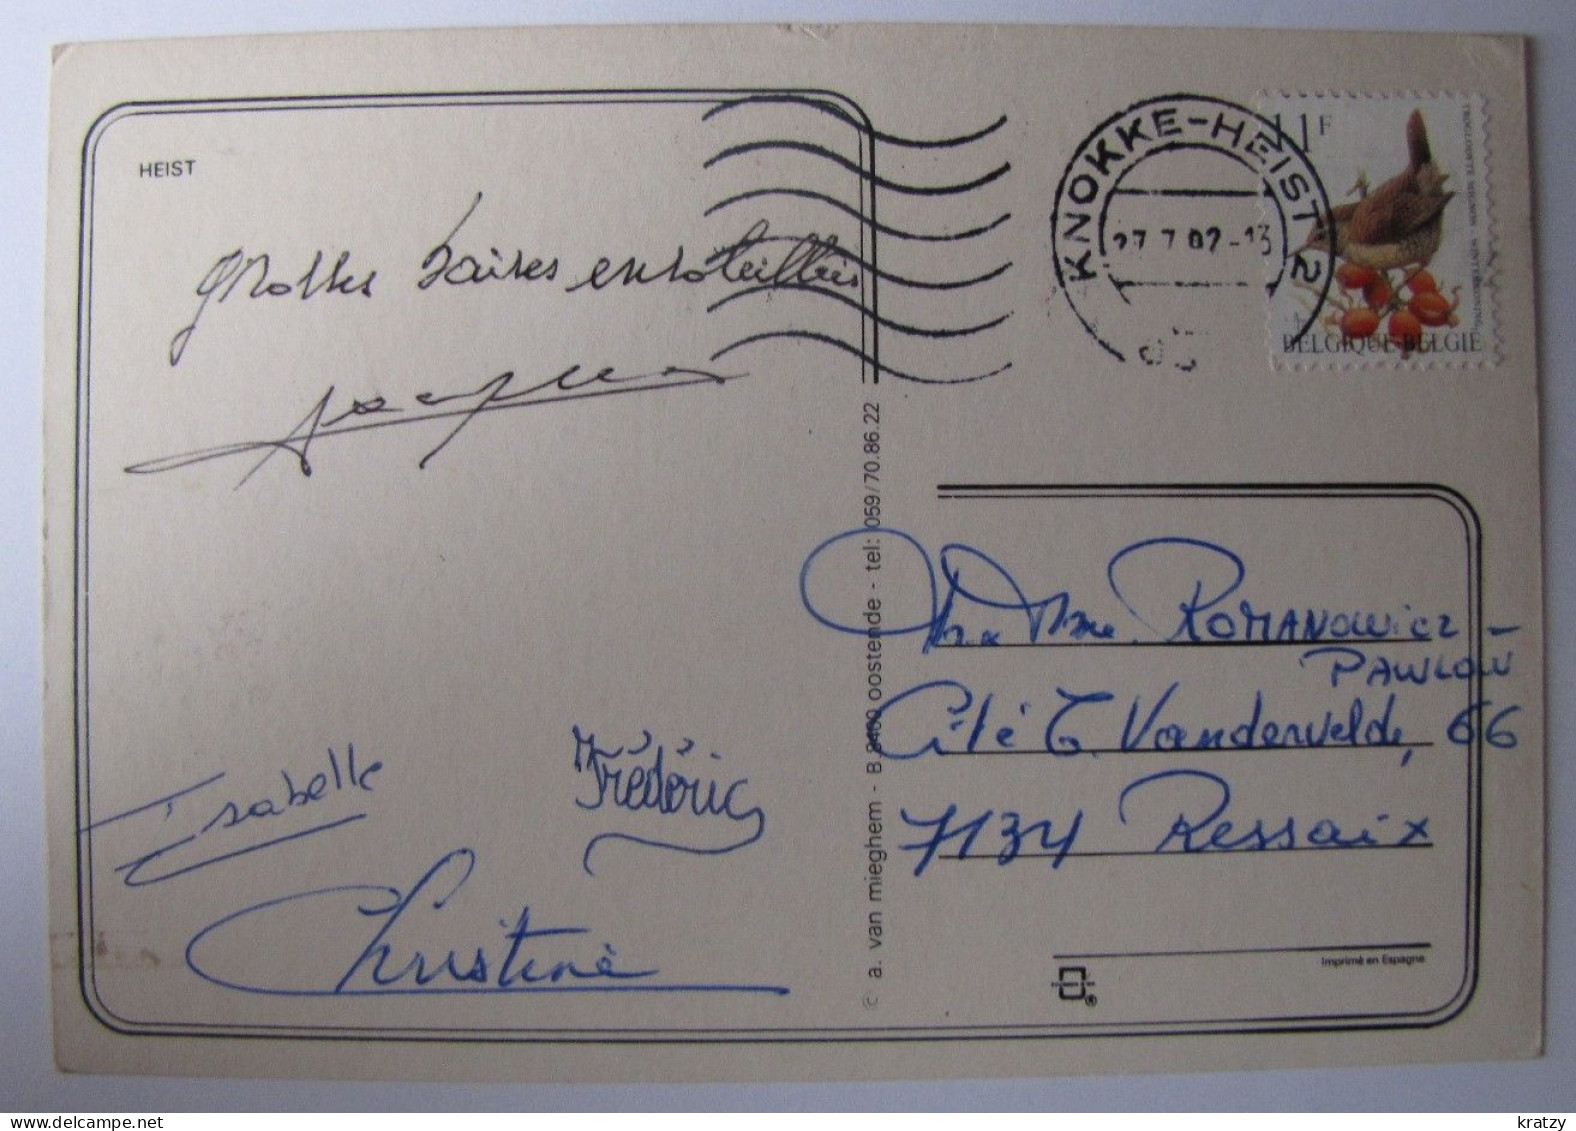 HEIST
grosses baises ensoleillées
Jacques
Isabelle
Frédéric
Christine
© a. van mieghem - B 8400 oostende - tel: 059/70.86.22
KNOKKE-HEIST 2
27.7.92-13
11F
BELGIQUE-BELGIË
Mme ROMANOWICZ -
PAWLOW
Cité E. Vandervelde, 66
7134 Ressaix
Imprimé en Espagne
®
kratzy